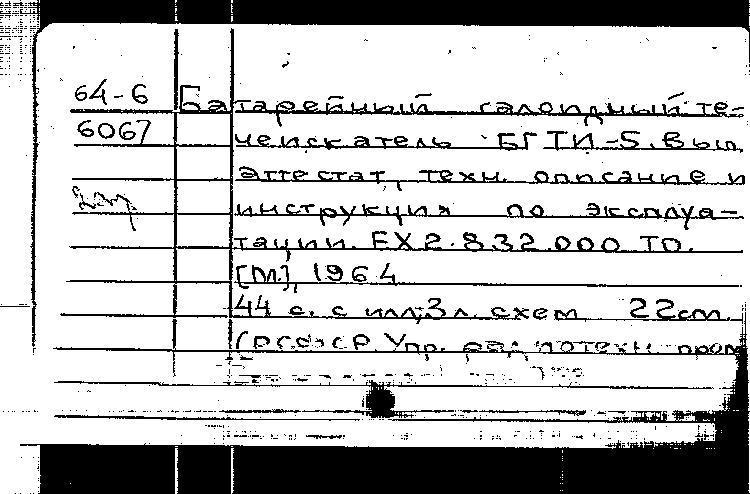 64-6 Батарейный галоидный те-
6067 чеискатель БГТИ-5. Вып.
аттестат, техн. описание и
инструкция по эксплуа-
тации. ЕХ2.832.000 ТО.
[М.], 1964
44 с. с илл; 3 л. схем 22 см
(РСФСР. Упр. радиотехн. пром